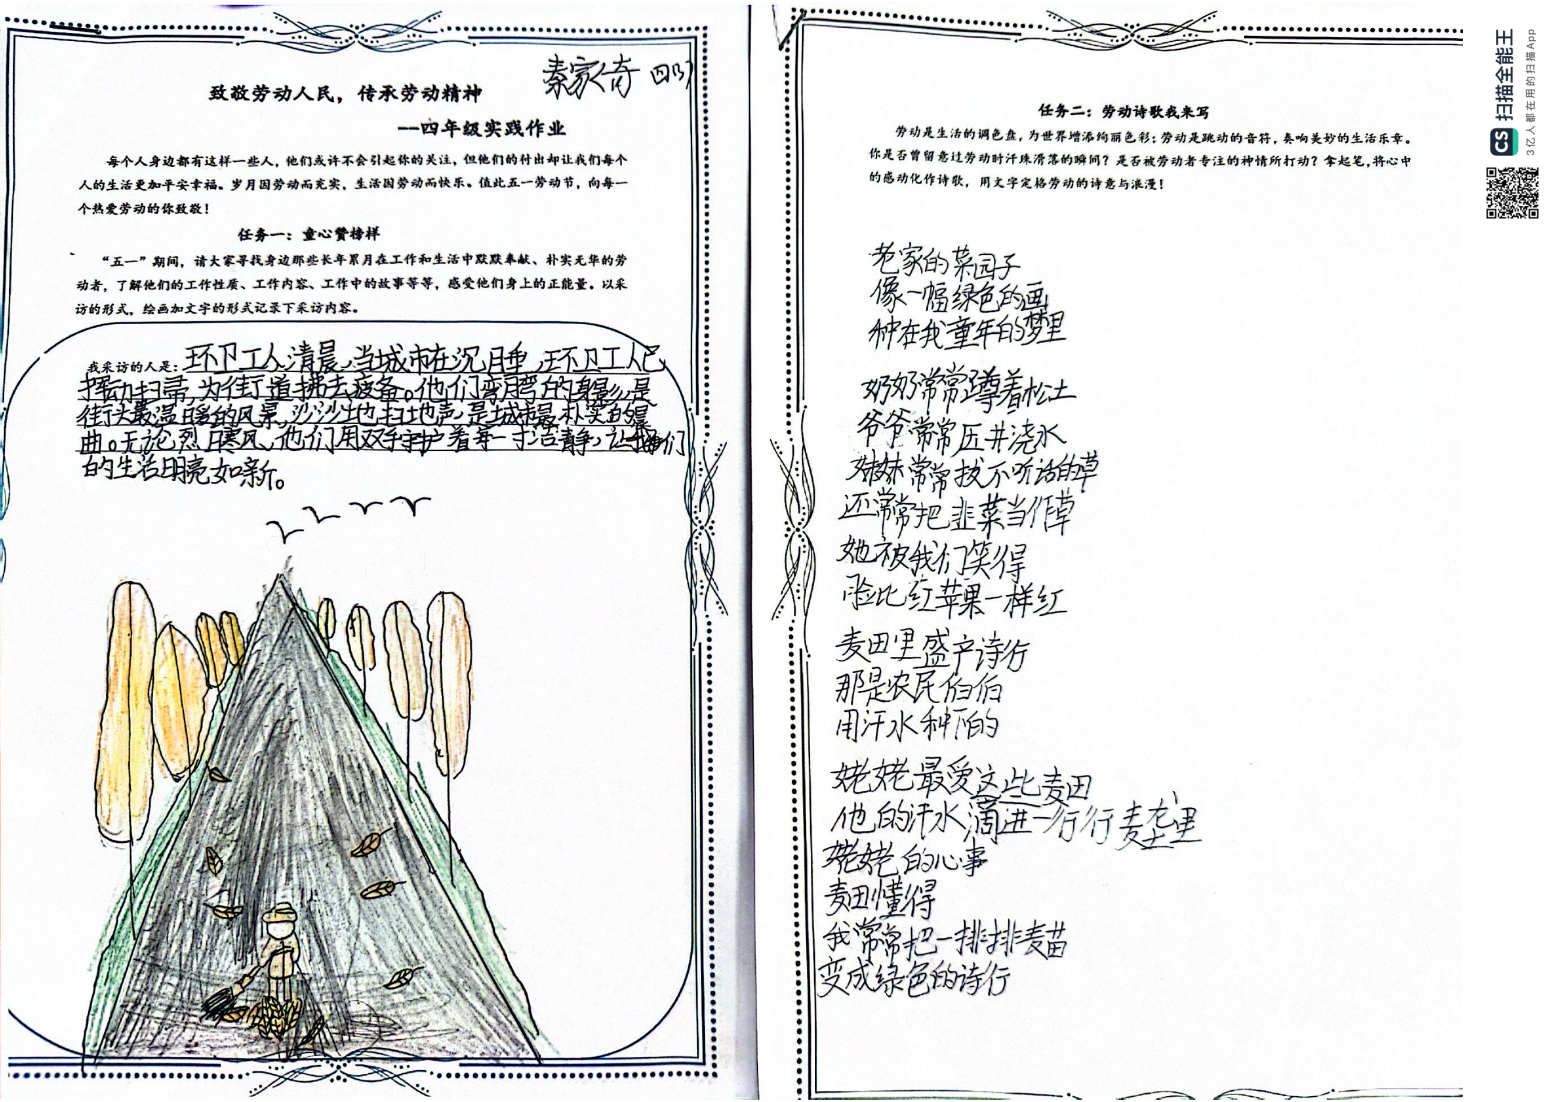 秦家传奇 四(3)
致敬劳动人民，传承劳动精神
--四年级实践作业
每个人身边都有这样一些人，他们或许不会引起你的关注，但他们的付出却让我们每个
人的生活更加平安幸福。岁月因劳动而充实，生活因劳动而快乐。值此五一劳动节，向每一
个热爱劳动的你致敬！
任务一：童心赞榜样
“五一”期间，请大家寻找身边那些长年累月在工作和生活中默默奉献、朴实无华的劳
动者，了解他们的工作性质、工作内容、工作中的故事等等，感受他们身上的正能量。以采
访的形式，绘画加文字的形式记录下采访内容。
我采访的人是：环卫工人，清晨，当城市在沉睡，环卫工人已
挥动扫帚，为街道拂去疲备。他们弯弯的身影，是
街头最温暖的风景，沙沙地扫地声，是城市最朴实的晨
曲。无论烈日寒风，他们用双手守护着每一寸洁静，让我们
的生活明亮如新。
任务二：劳动诗歌我来写
劳动是生活的调色盘，为世界增添绚丽色彩；劳动是跳动的音符，奏响美妙的生活乐章。
你是否曾留意过劳动时汗珠滑落的瞬间？是否被劳动者专注的神情所打动？拿起笔，将心中
的感动化作诗歌，用文字定格劳动的诗意与浪漫！
老家的菜园子
像一幅绿色的画
种在我童年的梦里
奶奶常常蹲着松土
爷爷常常压井浇水
妹妹常常拔不听话的草
还常常把韭菜当作草
她被我们笑得
脸比红苹果一样红
麦田里盛产诗行
那是农民伯伯
用汗水种下的
姥姥最爱这些麦田
他的汗水滴进一行行麦垄里
姥姥的心事
麦田懂得
我常常把一排排麦苗
变成绿色的诗行
CS 扫描全能王
3亿人都在用的扫描App